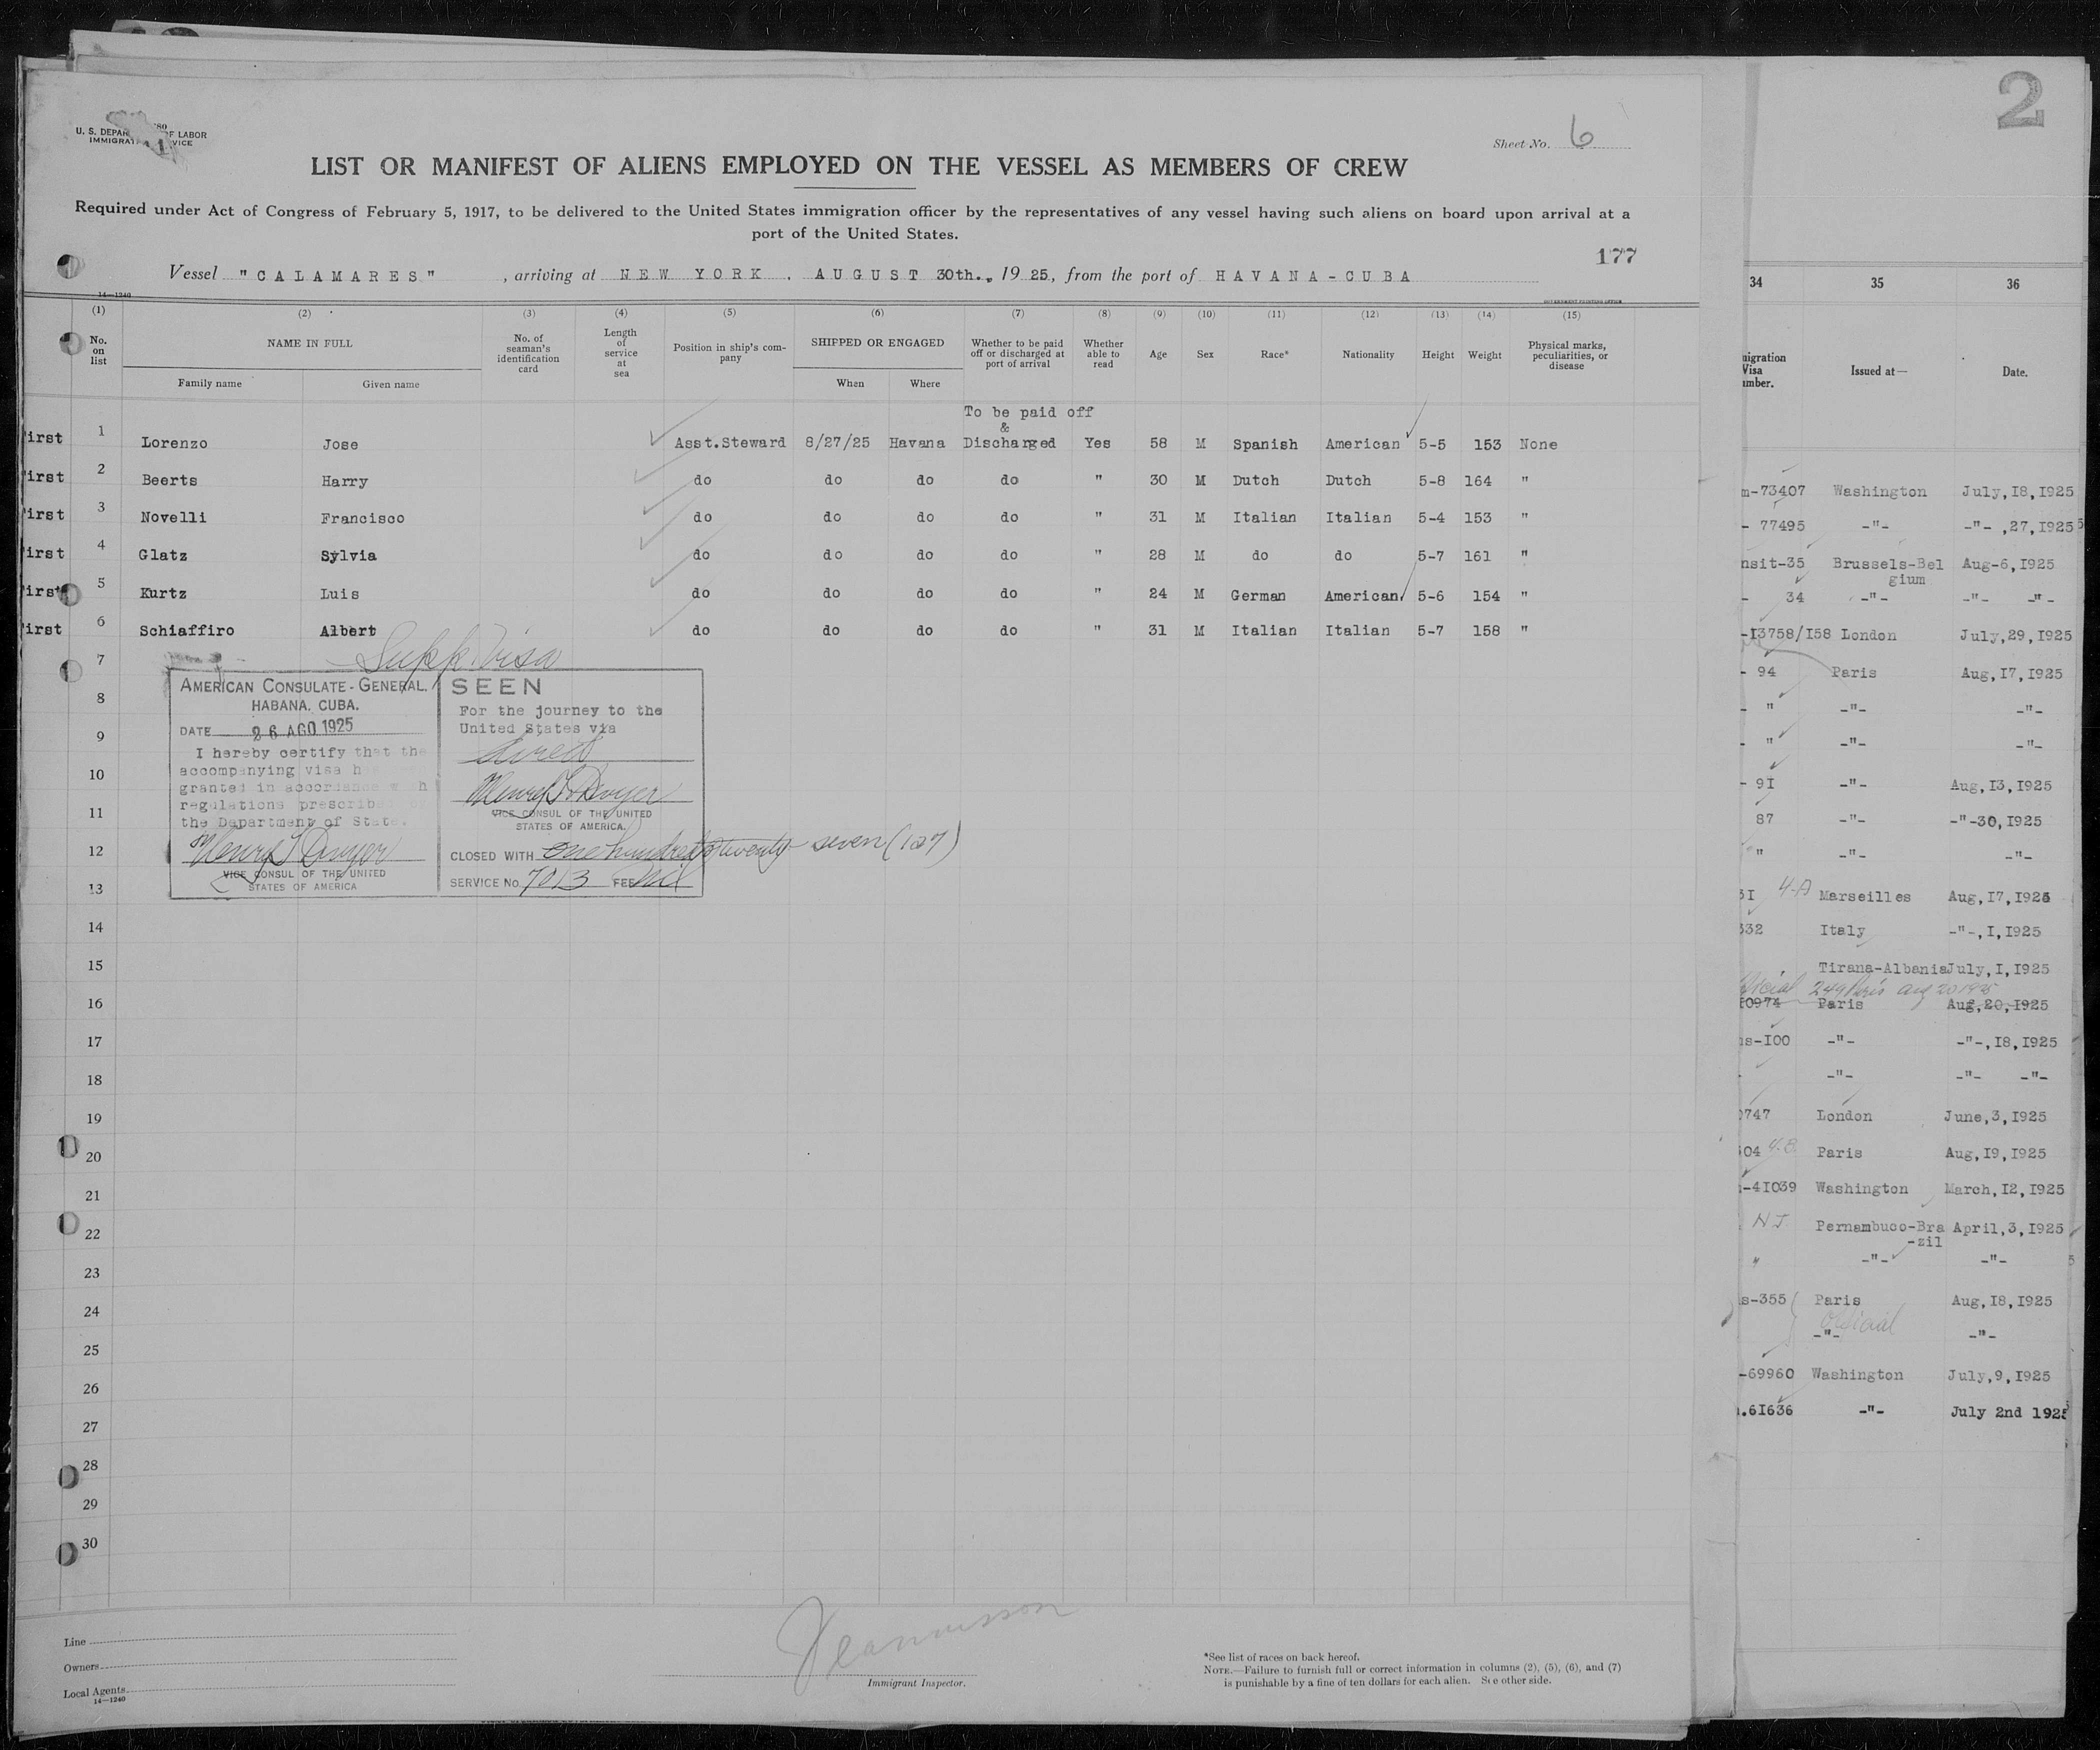 2
U. S. DEPAR OF LABOR
IMMIGRAT VICE
Sheet No. 6
LIST OR MANIFEST OF ALIENS EMPLOYED ON THE VESSEL AS MEMBERS OF CREW
Required under Act of Congress of February 5, 1917, to be delivered to the United States immigration officer by the representatives of any vessel having such aliens on board upon arrival at a
port of the United States.
177
Vessel "CALAMARES", arriving at NEW YORK. AUGUST 30th., 1925, from the port of HAVANA-CUBA
14—1240
GOVERNMENT PRINTING OFFICE
(1) (2) (3) (4) (5) (6) (7) (8) (9) (10) (11) (12) (13) (14) (15)
No. on list
NAME IN FULL
Family name Given name
No. of seaman's identification card
Length of service at sea
Position in ship's company
SHIPPED OR ENGAGED
When Where
Whether to be paid off or discharged at port of arrival
Whether able to read
Age Sex Race* Nationality Height Weight
Physical marks, peculiarities, or disease
To be paid off
&
irst 1 Lorenzo Jose Asst.Steward 8/27/25 Havana Discharged Yes 58 M Spanish American 5-5 153 None
irst 2 Beerts Harry do do do do " 30 M Dutch Dutch 5-8 164 "
irst 3 Novelli Francisco do do do do " 31 M Italian Italian 5-4 153 "
irst 4 Glatz Sylvia do do do do " 28 M do do 5-7 161 "
irst 5 Kurtz Luis do do do do " 24 M German American 5-6 154 "
irst 6 Schiaffiro Albert do do do do " 31 M Italian Italian 5-7 158 "
7
Supp. Visa
8
9
10
11
12
13
14
15
16
17
18
19
20
21
22
23
24
25
26
27
28
29
30
AMERICAN CONSULATE-GENERAL.
HABANA. CUBA.
DATE 26 AGO 1925
I hereby certify that the
accompanying visa h
granted in accordance with
regulations prescribed
the Department of State.
Henry T. Dwyer
VICE CONSUL OF THE UNITED
STATES OF AMERICA
SEEN
For the journey to the
United States via
direct
Henry T. Dwyer
VICE CONSUL OF THE UNITED
STATES OF AMERICA.
CLOSED WITH One hundred & twenty-seven (127)
SERVICE No. 7013 FEE Nil
Line
Owners
Local Agents
14—1240
Immigrant Inspector.
*See list of races on back hereof.
NOTE.—Failure to furnish full or correct information in columns (2), (5), (6), and (7)
is punishable by a fine of ten dollars for each alien. See other side.
34 35 36
migration
Visa
umber.
Issued at—
Date.
m-73407 Washington July,I8,I925
- 77495 -"- -"- ,27,I925
nsit-35 Brussels-Bel Aug-6,I925
gium
- 34 -"- -"- -"-
-I3758/I58 London July,29,I925
- 94 Paris Aug,I7,I925
- " -"- -"-
- " -"- -"-
- 9I -"- Aug,I3,I925
87 -"- -"-30,I925
" -"- -"-
3I 4-A Marseilles Aug,I7,I925
332 Italy -"-,I,I925
Tirana-Albania July,I,I925
249 Paris Aug 20 1925
I0974 Paris Aug,20,I925
ns-I00 -"- -"-,I8,I925
- -"- -"- -"-
0747 London June,3,I925
04 4.B. Paris Aug,I9,I925
-4I039 Washington March,I2,I925
N.J. Pernambuco-Bra April,3,I925
-zil
" -"- -"-
s-355 Paris Aug,I8,I925
Official
-"- -"-
-69960 Washington July,9,I925
.6I636 -"- July 2nd 1925